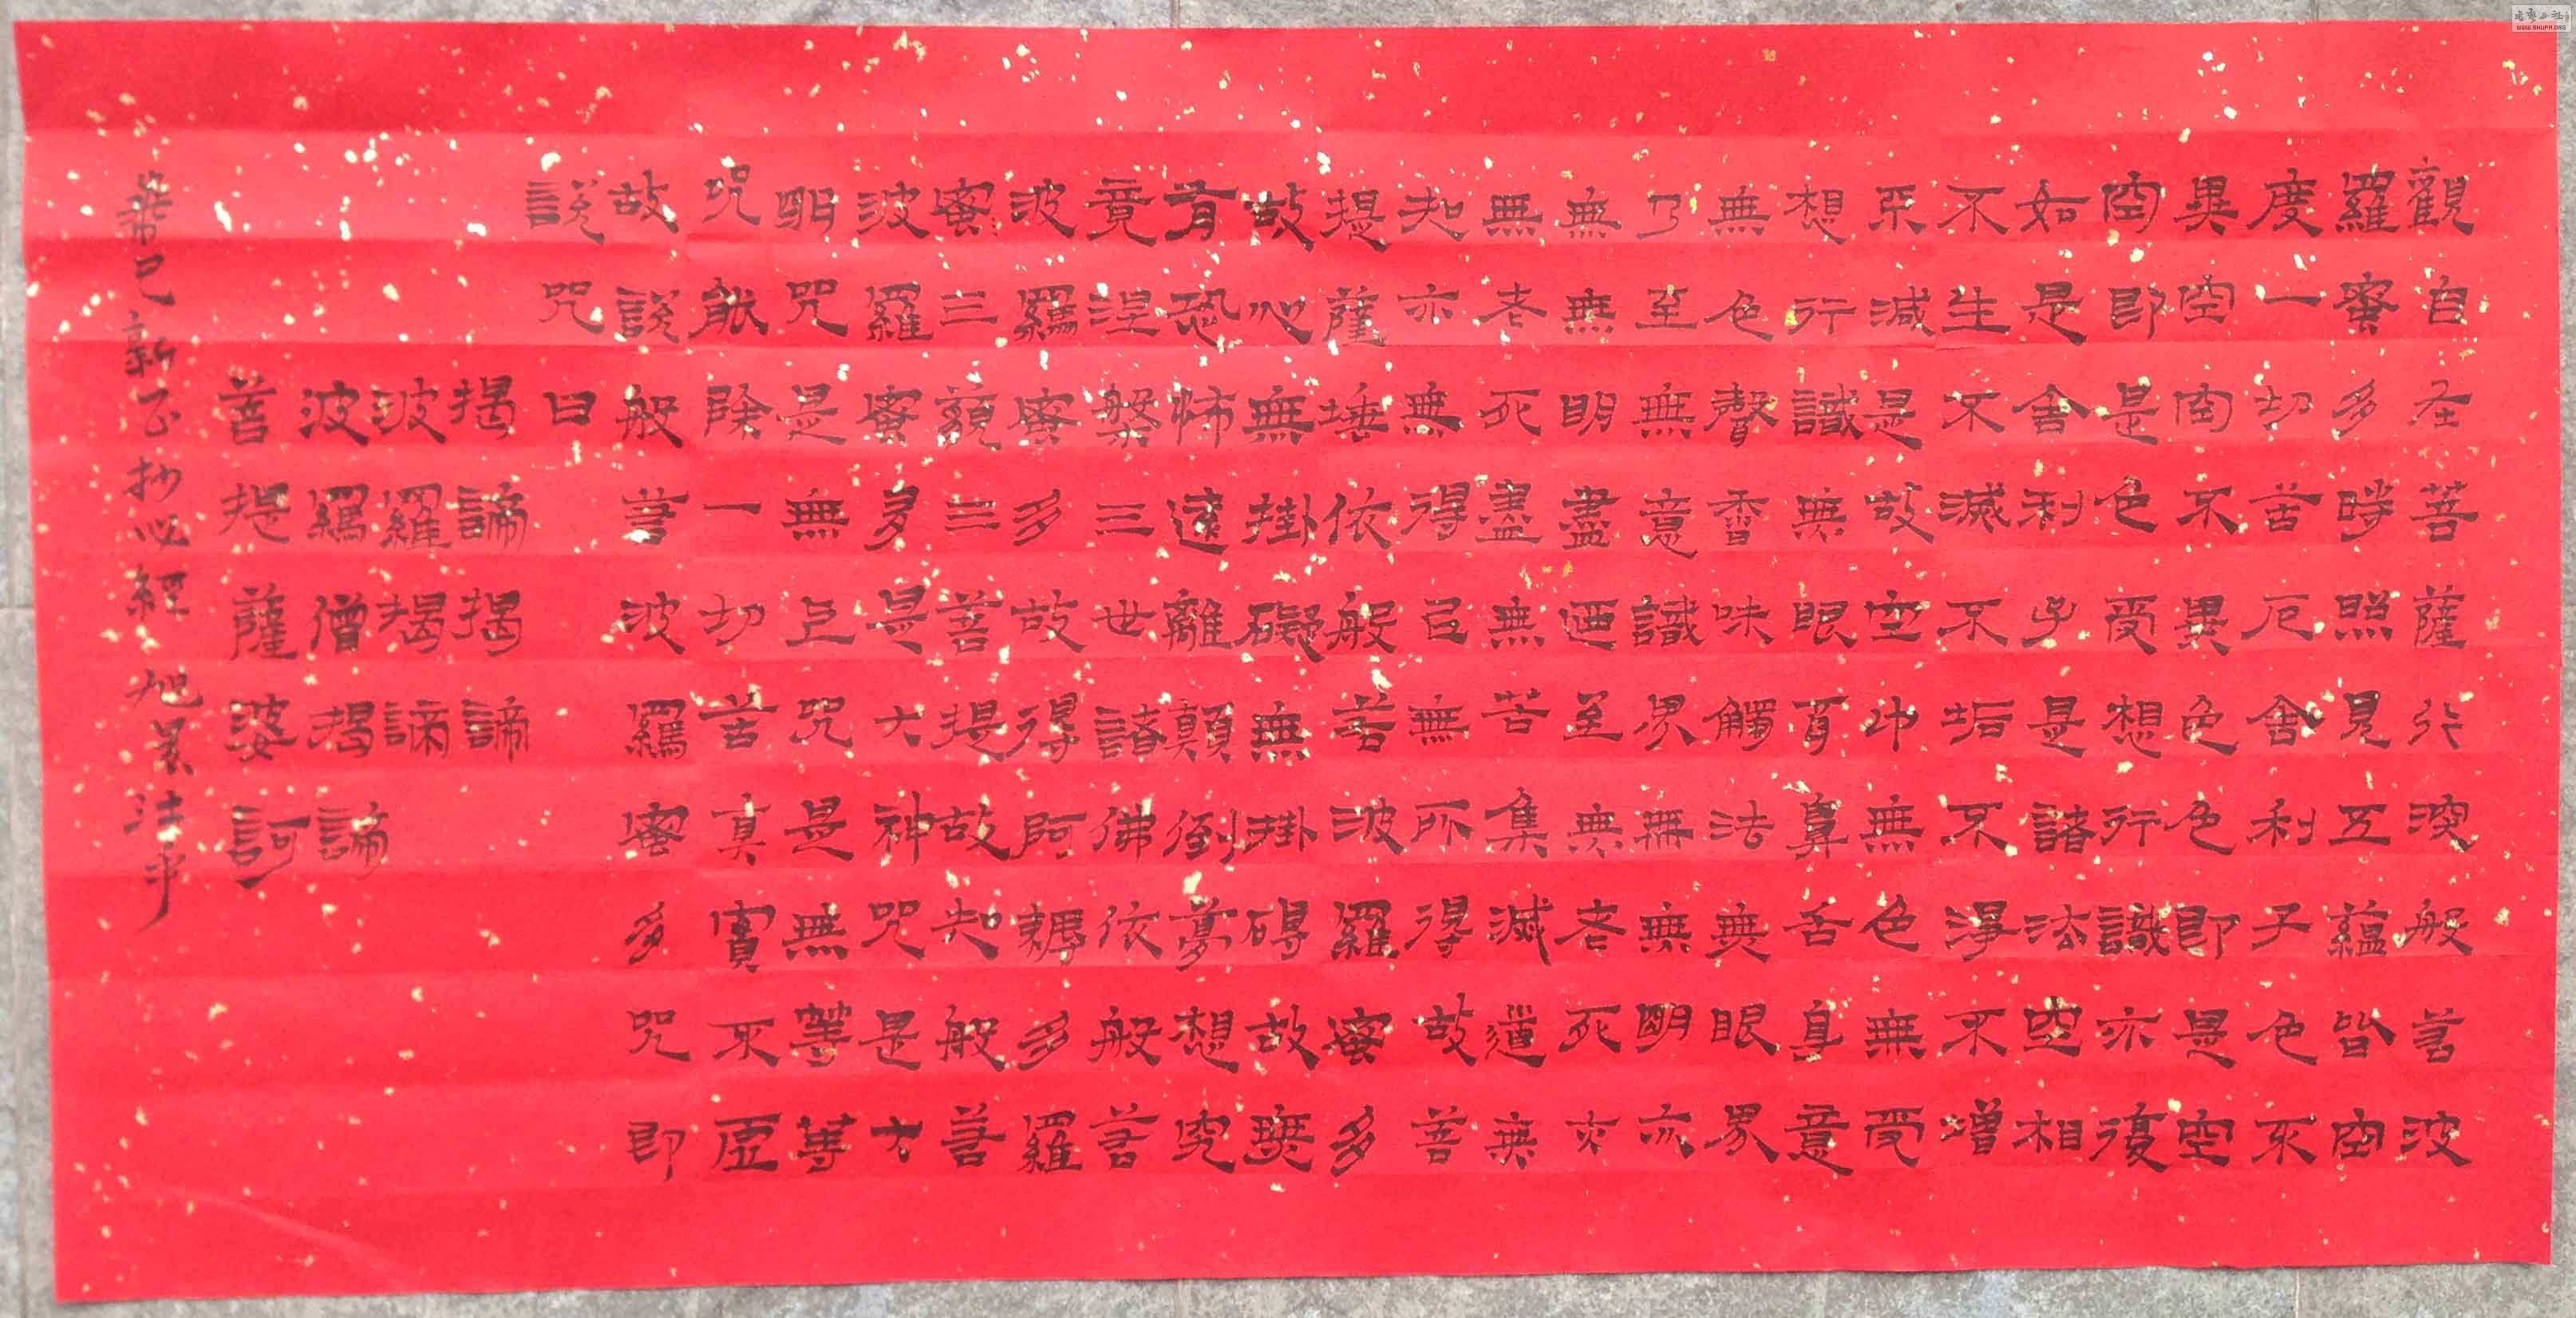 觀自在菩薩行深般若波
羅蜜多時照見五蘊皆空
度一切苦厄舍利子色不
異空空不異色色即是空
空即是色受想行識亦復
如是舍利子是諸法空相
不生不滅不垢不淨不增
不減是故空中無色無受
想行識無眼耳鼻舌身意
無色聲香味觸法無眼界
乃至無意識界無無明亦
無無明盡迺至無老死亦
無老死盡無苦集滅道無
知亦無得以無所得故菩
提薩埵依般若波羅蜜多
故心無掛礙無掛碍故無
有恐怖遠離顛倒夢想究
竟涅槃三世諸佛依般若
波羅蜜多故得阿耨多羅
蜜三藐三菩提故知般若
波羅蜜多是大神咒是大
明咒是無上咒是無等等
咒能除一切苦真實不虛
故說般若波羅蜜多咒即
說咒曰
揭諦揭諦
波羅揭諦
波羅僧揭諦
菩提薩婆訶
癸巳新正抄心經 旭
WWW.SHUFA.ORG